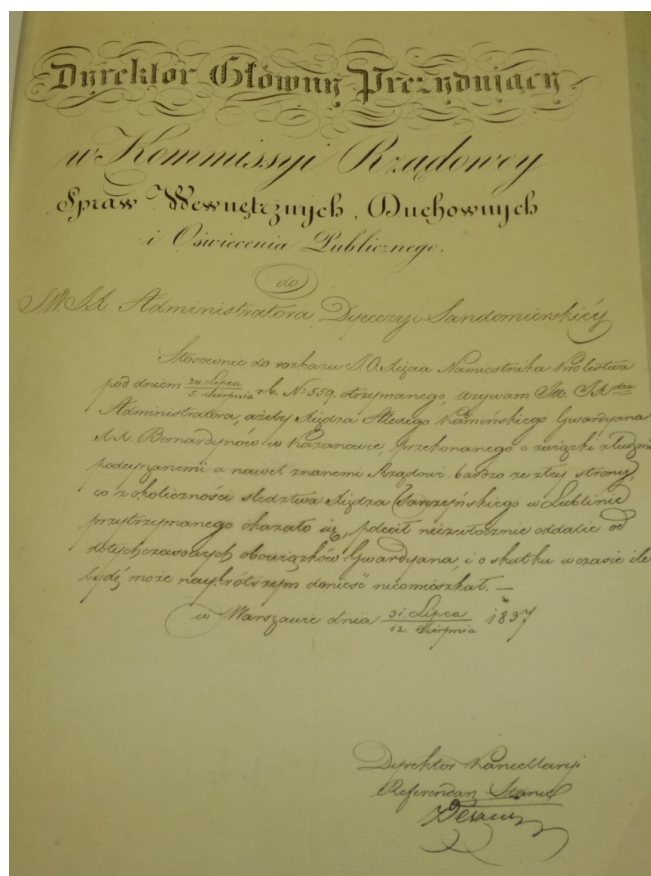 Dyrektor Główny Prezydujący
w Kommissyi Rządowey
Spraw Wewnętrznych, Duchownych
i Oświecenia Publicznego.
do
JW. JX. Administratora Dyecezyi Sandomierskiéy
Stosownie do rozkazu J. O. Xięcia Namiestnika Królestwa
pod dniem 24 Lipca / 5. Sierpnia r. b. No 559, otrzymanego, wzywam JW. JXdza
Administratora, ażeby Xiędza Kamińskiego Gwardyana
XX. Bernardynów w Kazanowie, przekonanego o związki z ludźmi
podeyrzanemi a nawet znanemi Rządowi bardzo ze złey strony,
co z okoliczności śledztwa Xiędza w Lublinie
przytrzymanego okazało się, polecił niezwłocznie oddalić od
dotychczasowych obowiązków Gwardyana, i o skutku w czasie ile
bydź może naykrótszym donieść nieomieszkał. —
w Warszawie dnia 31 Lipca / 12. Sierpnia 1837
Dyrektor Kancellaryi
Referendarz Stanu